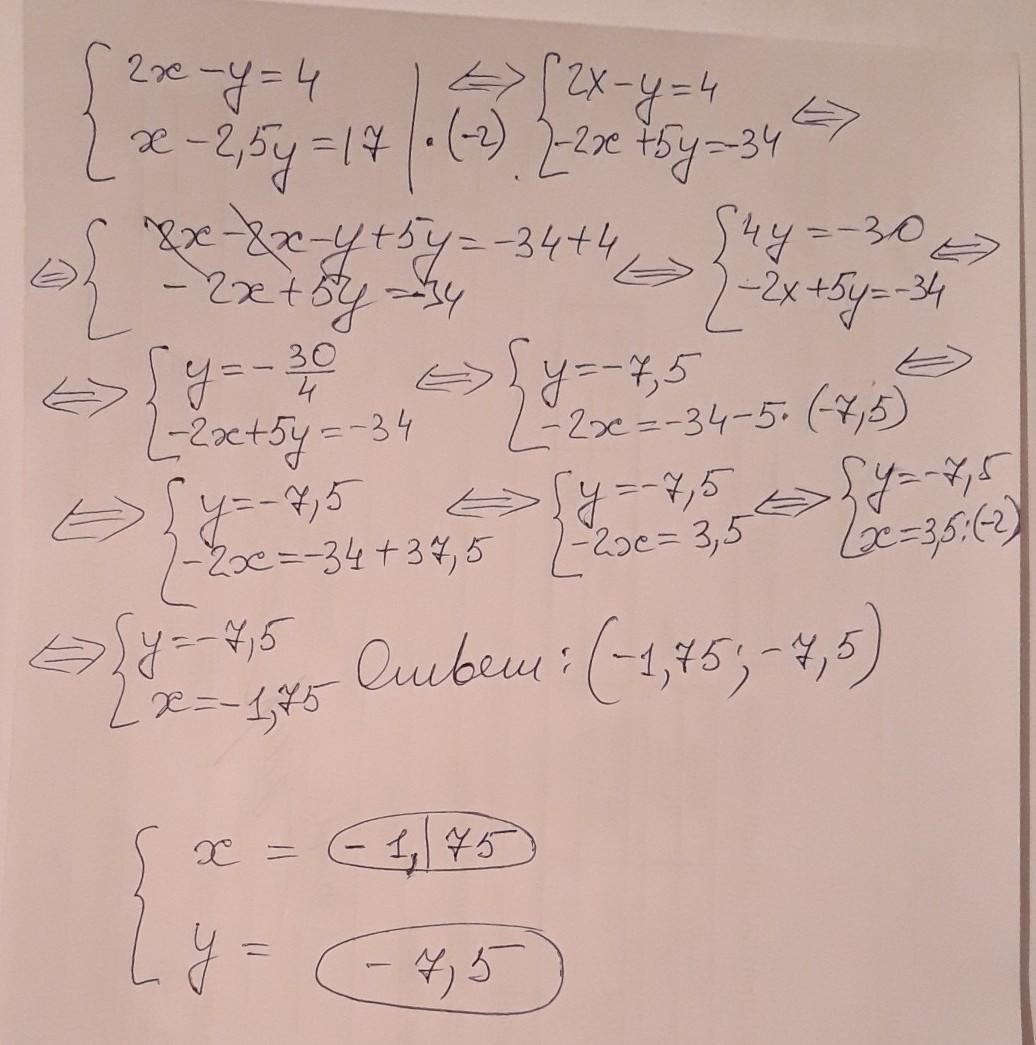 { 2x - y = 4
x - 2,5y = 17 | · (-2) ⇔ { 2x - y = 4
-2x + 5y = -34 ⇔
⇔ { 2x - 2x - y + 5y = -34 + 4
-2x + 5y = -34 ⇔ { 4y = -30
-2x + 5y = -34 ⇔
⇔ { y = - 30/4
-2x + 5y = -34 ⇔ { y = -7,5
-2x = -34 - 5 · (-7,5) ⇔
⇔ { y = -7,5
-2x = -34 + 37,5 ⇔ { y = -7,5
-2x = 3,5 ⇔ { y = -7,5
x = 3,5 : (-2)
⇔ { y = -7,5
x = -1,75 Ответ: (-1,75; -7,5)
{ x = -1,75
y = -7,5